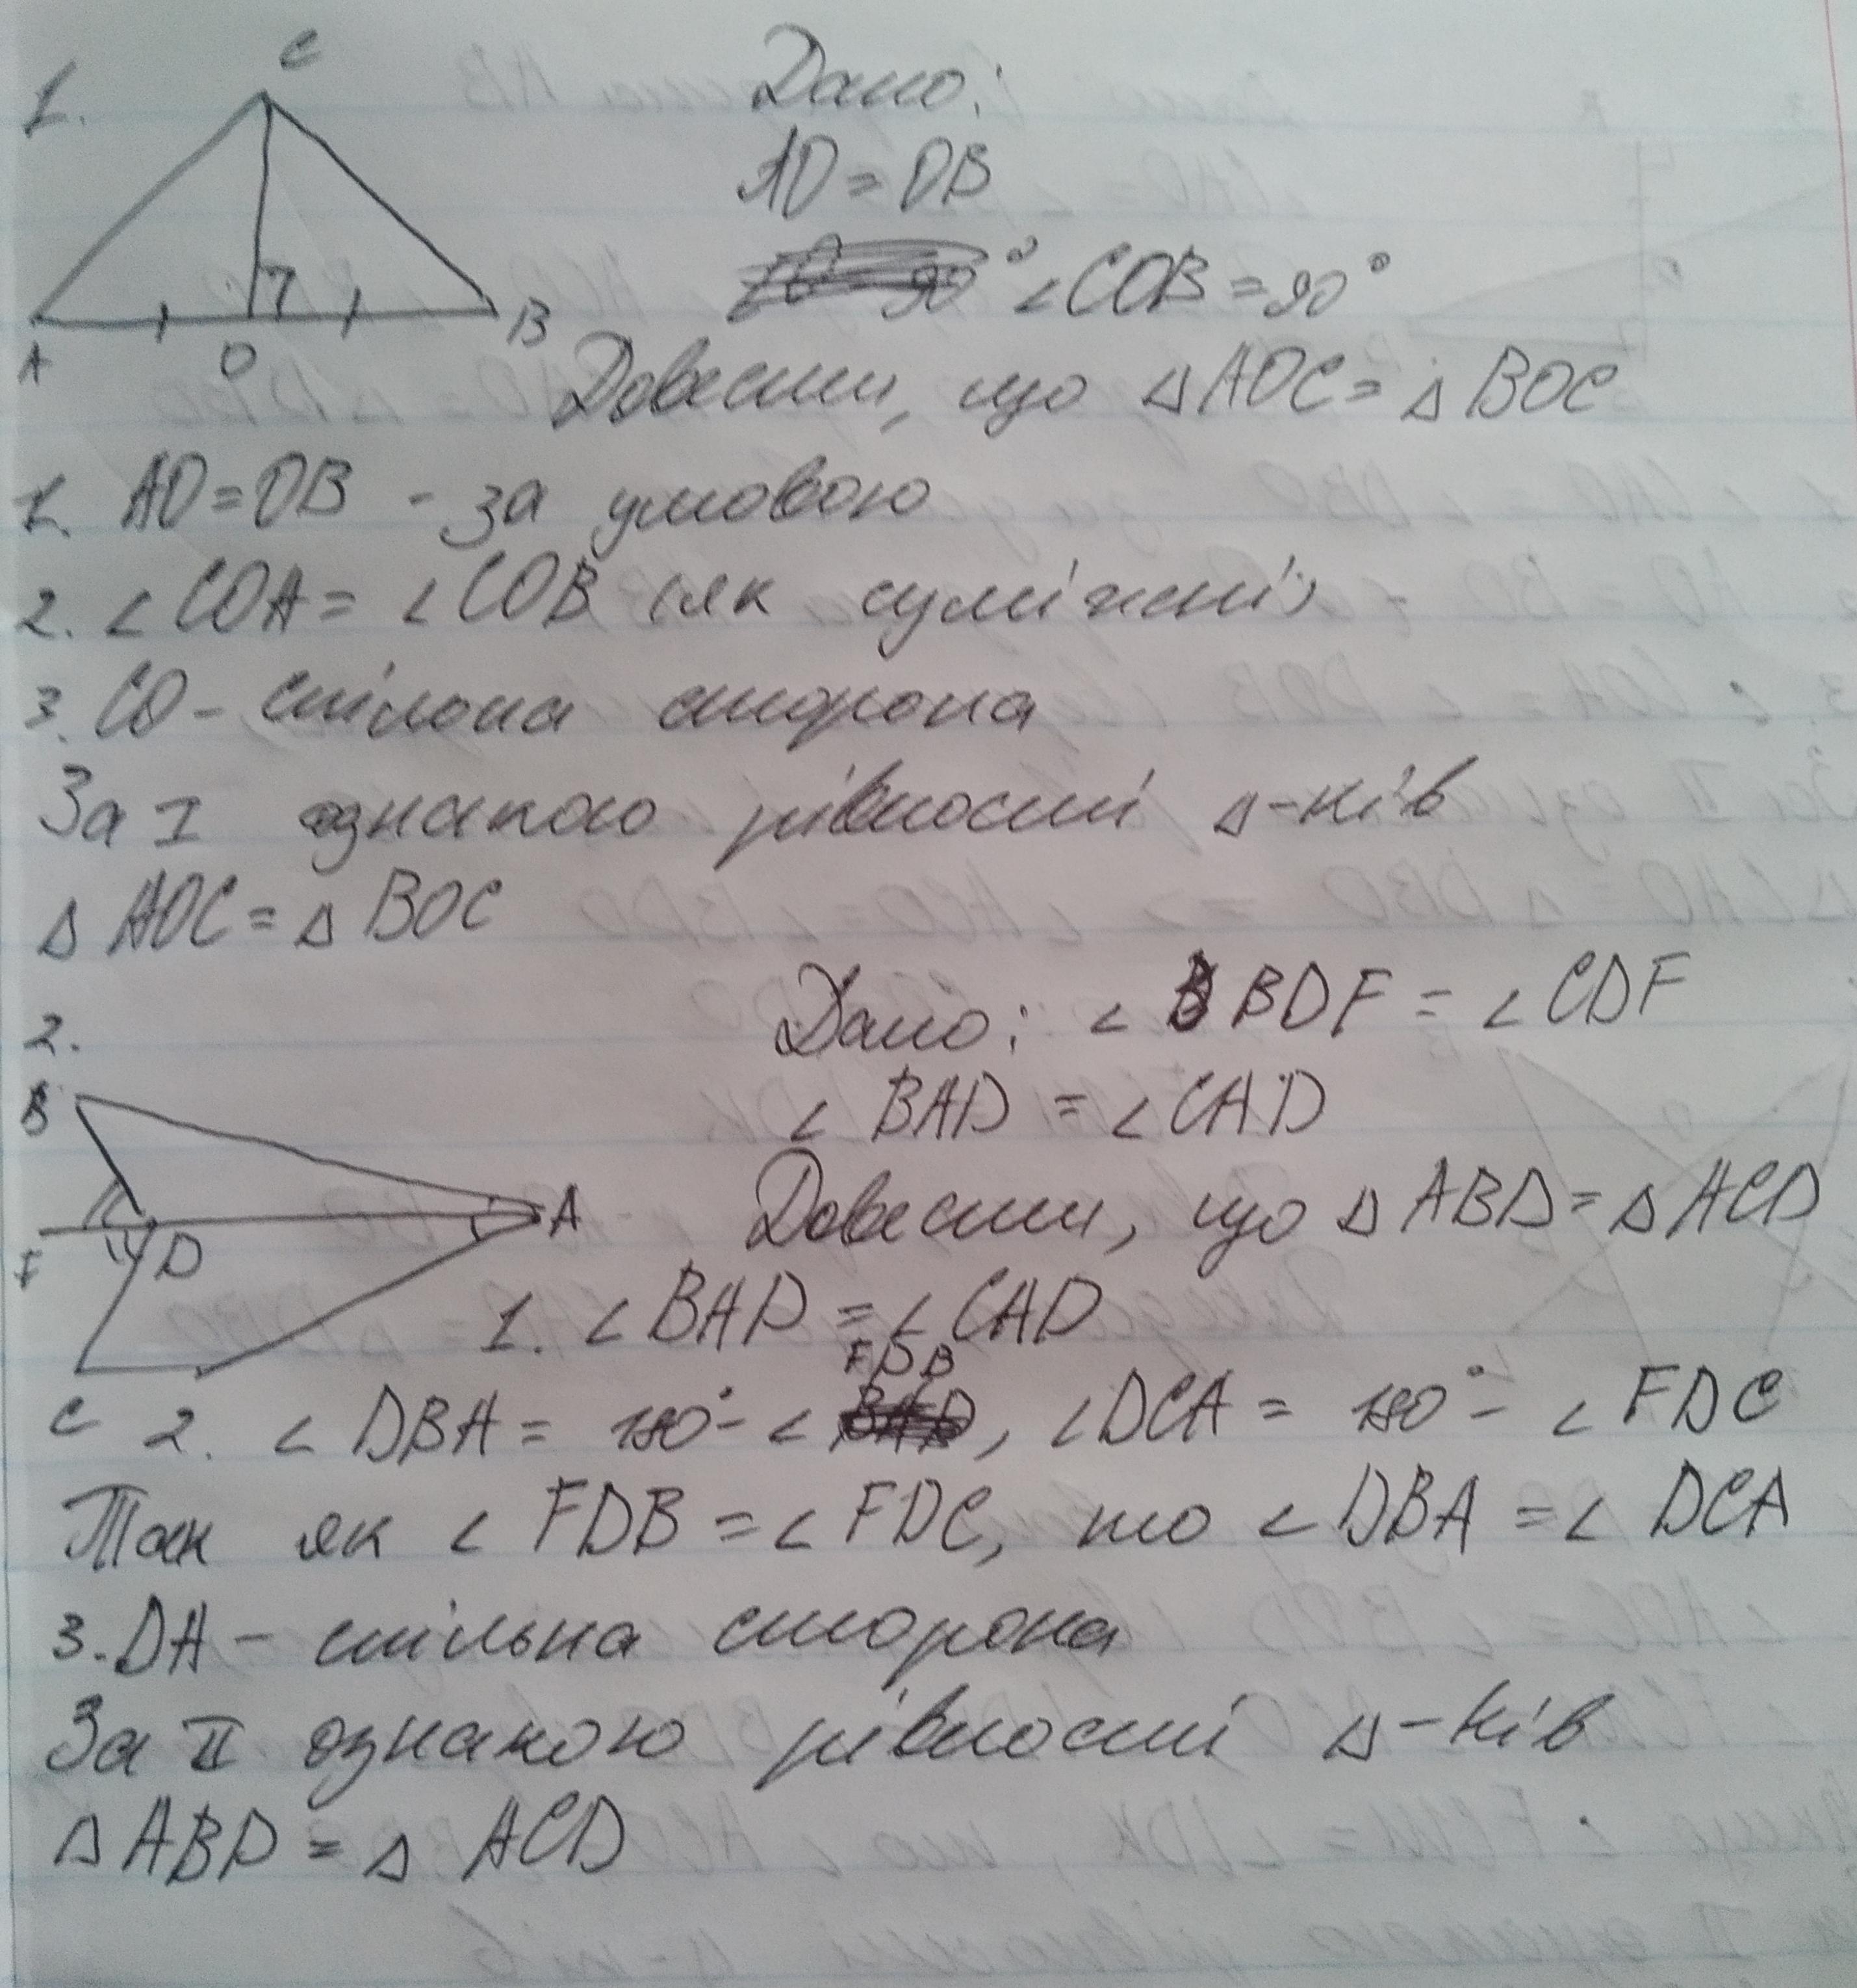 1.
C
A
O
B
Дано:
AO = OB
∠COB = 90°
Довести, що △AOC = △BOC
1. AO = OB - за умовою
2. ∠COA = ∠COB (як суміжні)
3. CO - спільна сторона
За I ознакою рівності △-ків
△ AOC = △ BOC
2.
B
A
F
D
C
Дано: ∠ BDF = ∠ CDF
∠ BAD = ∠ CAD
Довести, що △ ABD = △ ACD
1. ∠ BAD = ∠ CAD
2. ∠ DBA = 180° - ∠ FDB, ∠DCA = 180° - ∠ FDC
Так як ∠ FDB = ∠ FDC, то ∠ DBA = ∠ DCA
3. DA - спільна сторона
За II ознакою рівності △-ків
△ ABD = △ ACD